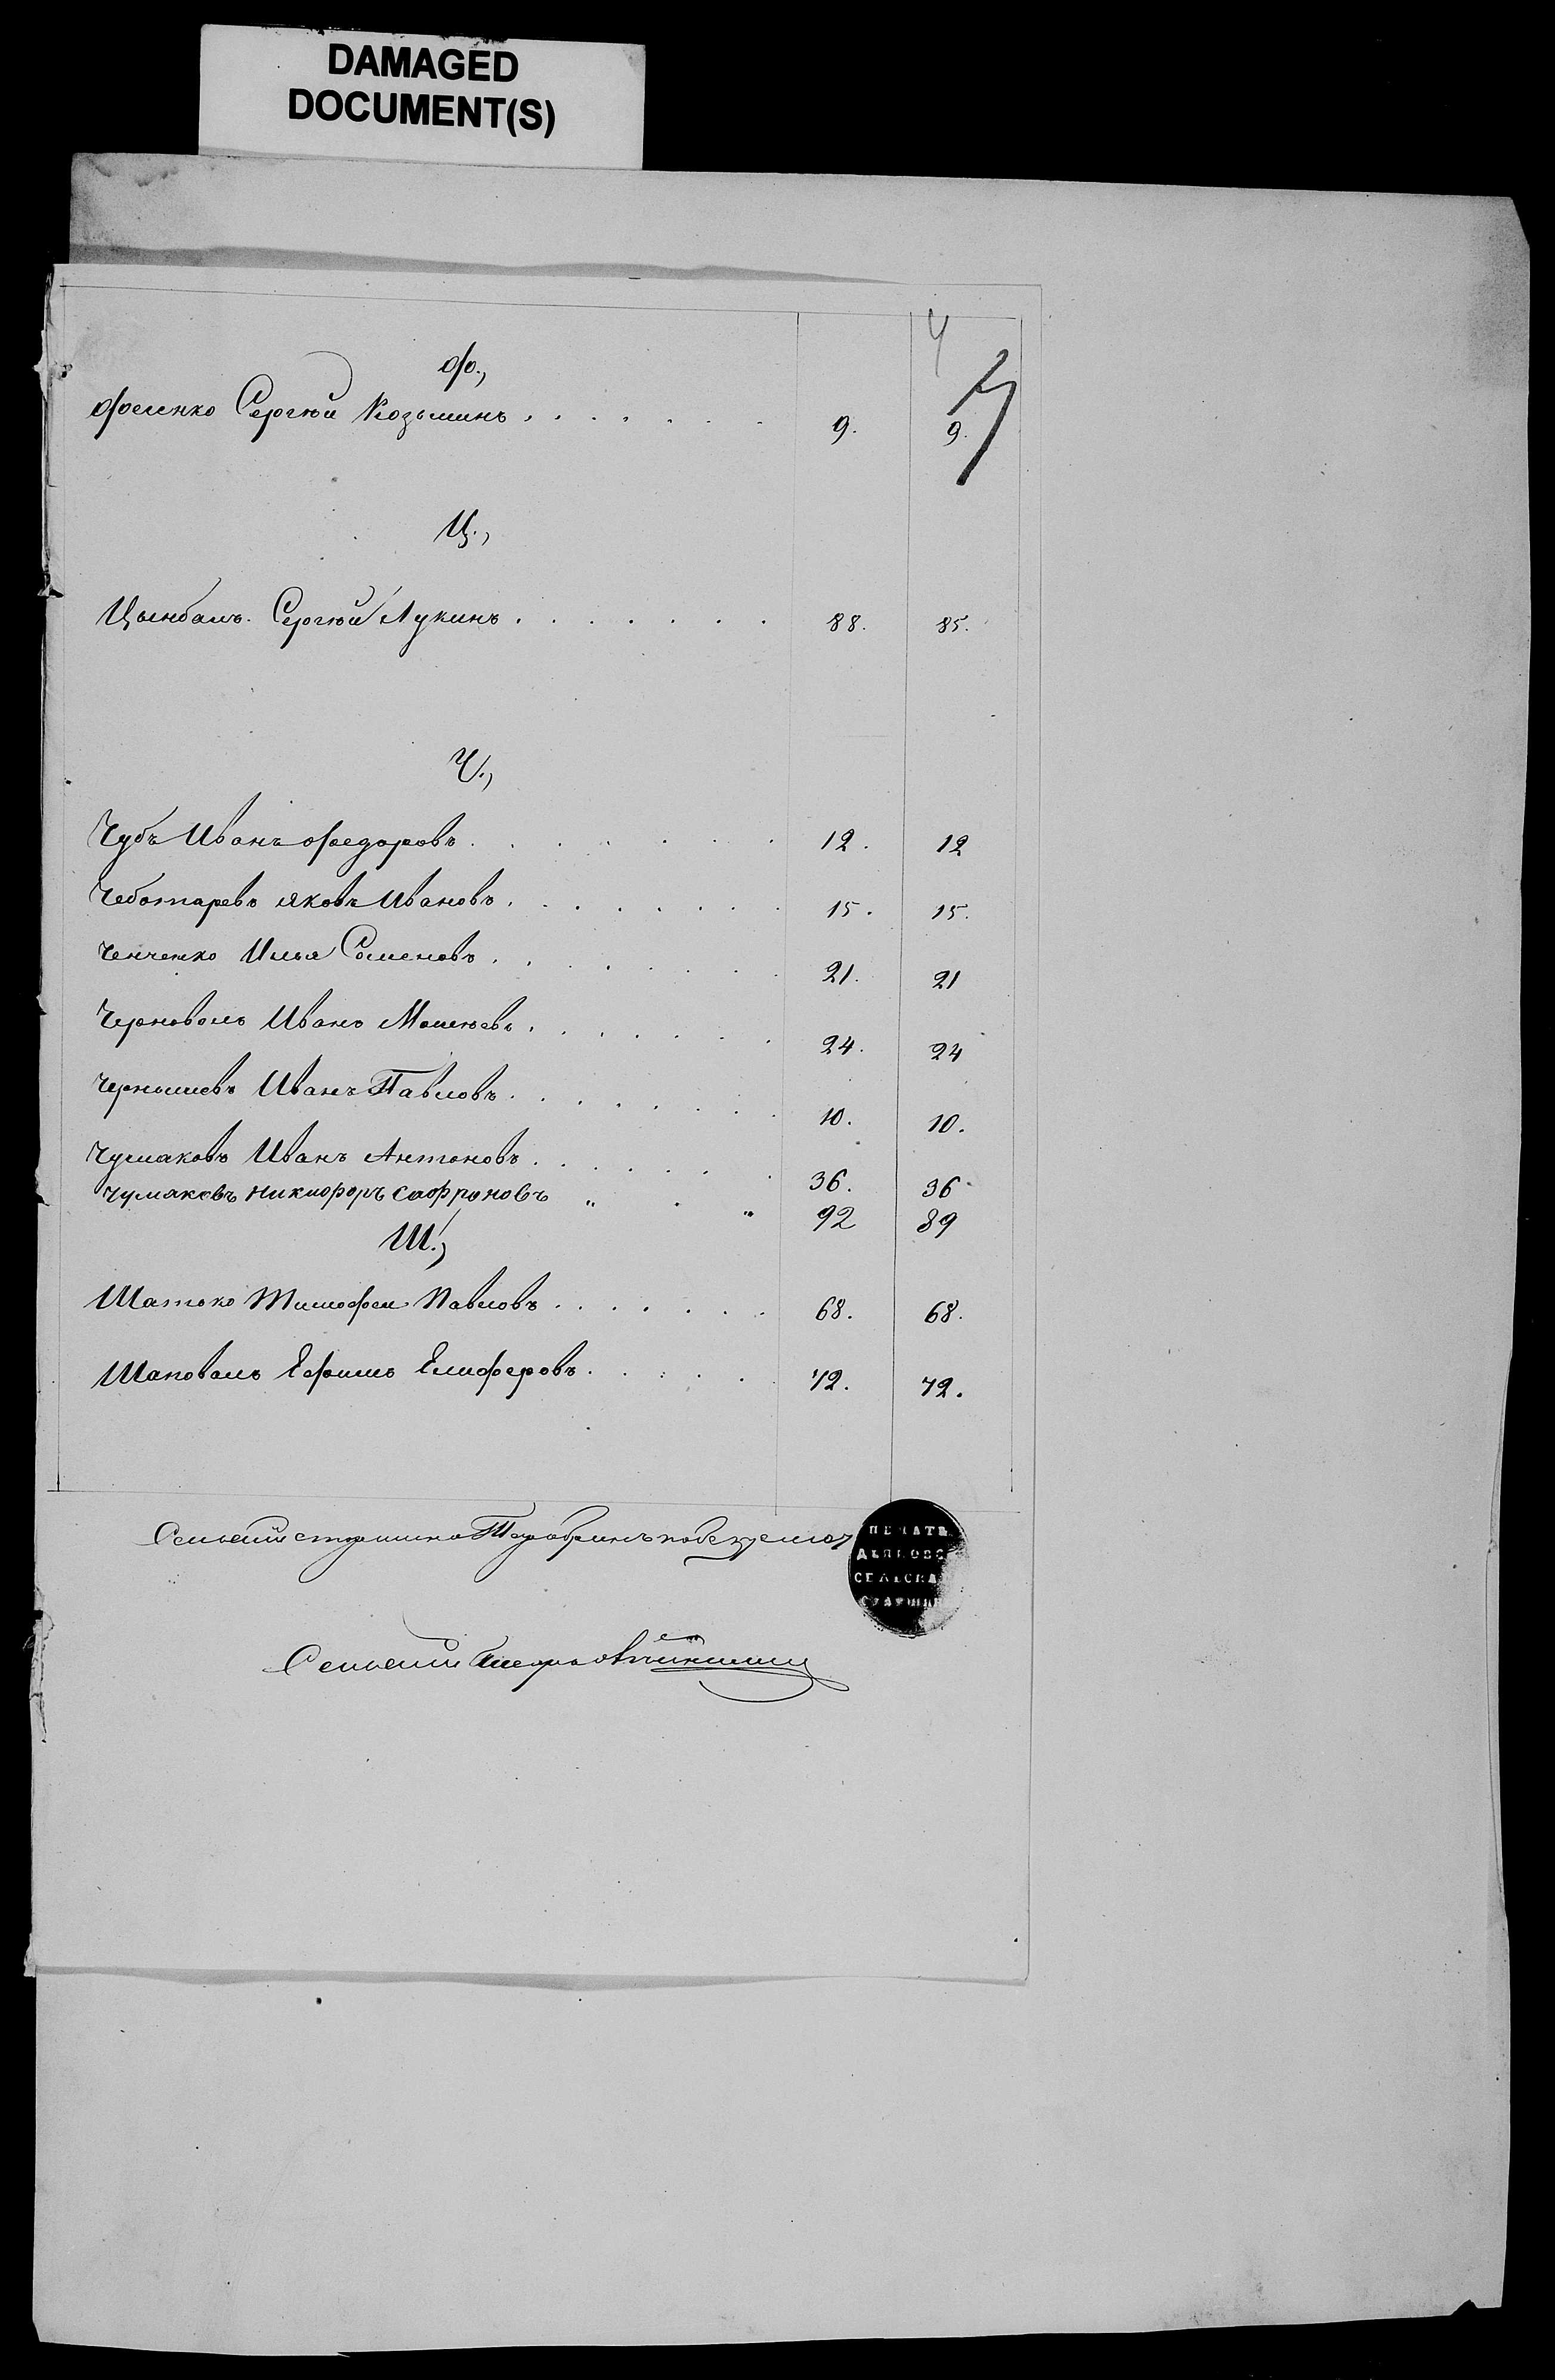 DAMAGED
DOCUMENT(S)
4
Ф.,
Фоменко Сергѣй Козьминъ . . . . . . 9. 9.
Ц.,
Цымбалъ Сергѣй Лукинъ . . . . . . . 88. 85.
Ч.,
Чубъ Иванъ Федоровъ . . . . . . . 12. 12
Чеботаревъ Яковъ Ивановъ . . . . . . . 15. 15.
Ченченко Илья Семеновъ . . . . . . . 21. 21
Черноволъ Иванъ Мошѣевъ . . . . . . 24. 24
Чернышевъ Иванъ Павловъ . . . . . . . 10. 10.
Чумаковъ Иванъ Антоновъ . . . . . . 36. 36
Чумаковъ Никифоръ Сафроновъ „ . „ 92 89
Ш.,
Шатохо Тимофей Павловъ . . . . . . 68. 68.
Шаповалъ Ефимъ Елиферовъ . . . . . 72. 72.
Сельскій старшина
ПЕЧАТЬ
ДЬЯКОВС
СЕЛЬСКА
СТАРШИН
Сельскій Писарь